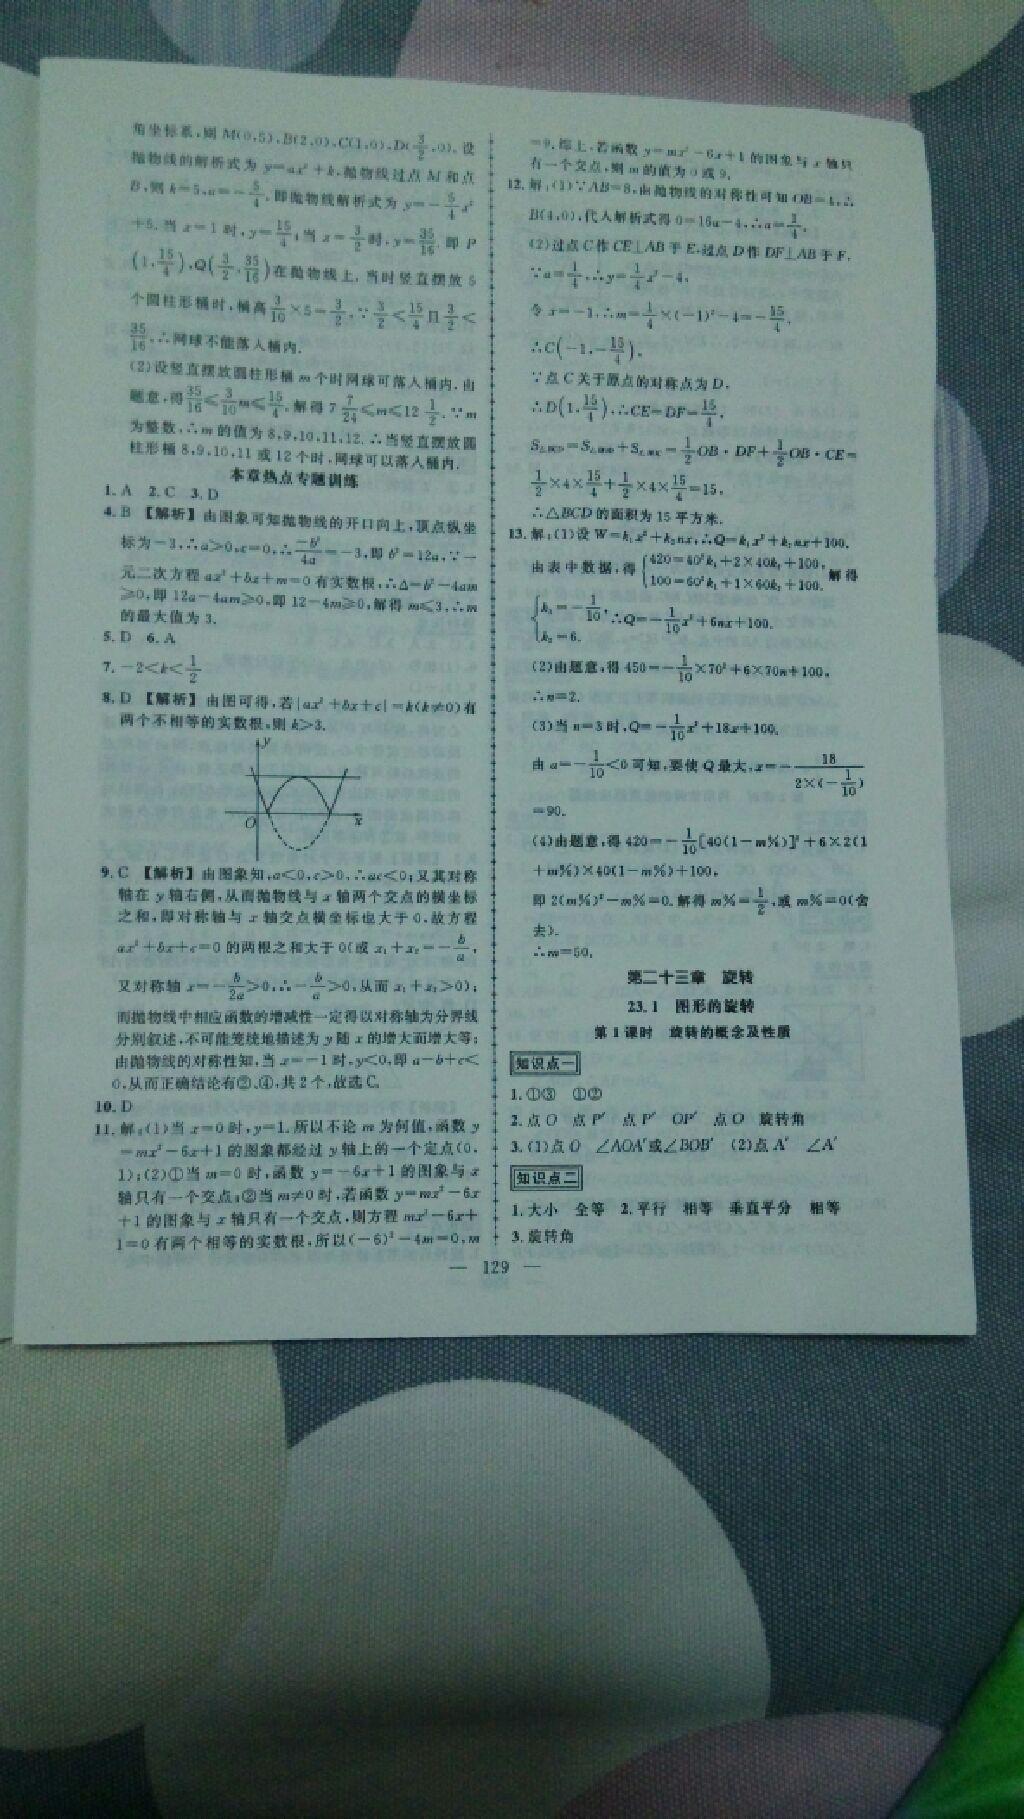 角坐标系,则M(0,5),B(2,0),C(1,0),D(3/2,0).设
抛物线的解析式为y=ax²+k,抛物线过点M和点
B,则k=5,a=-5/4.即抛物线解析式为y=-5/4x²
+5.当x=1时,y=15/4;当x=3/2时,y=35/16.即P
(1,15/4),Q(3/2,35/16)在抛物线上.当时竖直摆放5
个圆柱形桶时,桶高3/10×5=3/2.∵3/2<15/4且3/2<
35/16,∴网球不能落入桶内.
(2)设竖直摆放圆柱形桶m个时网球可落入桶内.由
题意,得35/16≤3/10m≤15/4.解得7 7/24≤m≤12 1/2.∵m
为整数,∴m的值为8,9,10,11,12.∴当竖直摆放圆
柱形桶8,9,10,11或12个时,网球可以落入桶内.
本章热点专题训练
1.A 2.C 3.D
4.B 【解析】由图象可知抛物线的开口向上,顶点纵坐
标为-3,∴a>0,c=0,∴-b²/4a=-3,即b²=12a,∵一
元二次方程ax²+bx+m=0有实数根,∴△=b²-4am
≥0,即12a-4am≥0,即12-4m≥0,解得m≤3,∴m
的最大值为3.
5.D 6.A
7.-2<k<1/2
8.D 【解析】由图可得,若|ax²+bx+c|=k(k≠0)有
两个不相等的实数根,则k>3.
y
O
x
9.C 【解析】由图象知,a<0,c>0,∴ac<0;又其对称
轴在y轴右侧,从而抛物线与x轴两个交点的横坐标
之和,即对称轴与x轴交点横坐标也大于0,故方程
ax²+bx+c=0的两根之和大于0(或x₁+x₂=-b/a,
又对称轴x=-b/2a>0,∴-b/a>0,从而x₁+x₂>0);
而抛物线中相应函数的增减性一定得以对称轴为分界线
分别叙述,不可能笼统地描述为y随x的增大而增大等;
由抛物线的对称性知,当x=-1时,y<0,即a-b+c<
0,从而正确结论有②、④,共2个,故选C.
10.D
11.解:(1)当x=0时,y=1.所以不论m为何值,函数y
=mx²-6x+1的图象都经过y轴上的一个定点(0,
1);(2)①当m=0时,函数y=-6x+1的图象与x
轴只有一个交点;②当m≠0时,若函数y=mx²-6x
+1的图象与x轴只有一个交点,则方程mx²-6x+
1=0有两个相等的实数根,所以(-6)²-4m=0,m
=9.综上,若函数y=mx²-6x+1的图象与x轴只
有一个交点,则m的值为0或9.
12.解:(1)∵AB=8,由抛物线的对称性可知OB=4,∴
B(4,0),代入解析式得0=16a-4,∴a=1/4.
(2)过点C作CE⊥AB于E,过点D作DF⊥AB于F,
∵a=1/4,∴y=1/4x²-4,
令x=-1,∴m=1/4×(-1)²-4=-15/4,
∴C(-1,-15/4),
∵点C关于原点的对称点为D,
∴D(1,15/4),∴CE=DF=15/4,
=1/2OB·DF+1/2OB·CE=
1/2×4×15/4+1/2×4×15/4=15,
∴△BCD的面积为15平方米.
13.解:(1)设W=k₁x²+k₂nx,∴Q=k₁x²+k₂nx+100.
由表中数据,得{420=40²k₁+2×40k₂+100, 100=60²k₁+1×60k₂+100. 解得
{k₁=-1/10, k₂=6. ∴Q=-1/10x²+6nx+100.
(2)由题意,得450=-1/10×70²+6×70n+100,
∴n=2.
(3)当n=3时,Q=-1/10x²+18x+100.
由a=-1/10<0可知,要使Q最大,x=-18/(2×(-1/10))
=90.
(4)由题意,得420=-1/10[40(1-m%)]²+6×2(1
+m%)×40(1-m%)+100,
即2(m%)²-m%=0.解得m%=1/2,或m%=0(舍
去).
∴m=50.
第二十三章 旋转
23.1 图形的旋转
第1课时 旋转的概念及性质
知识点一
1.①③ ①②
2.点O 点P′ 点P′ OP′ 点O 旋转角
3.(1)点O ∠AOA′或∠BOB′ (2)点A′ ∠A′
知识点二
1.大小 全等 2.平行 相等 垂直平分 相等
3.旋转角
— 129 —